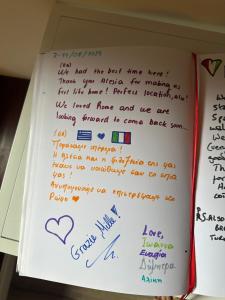 (EN)
We had the best time here!
Thank you Alessia for making us
feel like home! Perfect location, also!
We loved Rome and we are
looking forward to come back soon...
(GR)
Περάσαμε υπέροχα!
Η Αλεσία και η φιλοξενία της μας
έκανε να νιώθουμε σαν το σπίτι
μας!
Ανυπομονούμε να επιστρέψουμε στη
Ρώμη
Grazie Mille!
Love,
Ιωάννα
Ευαγγελία
Δήμητρα
Αλίκη